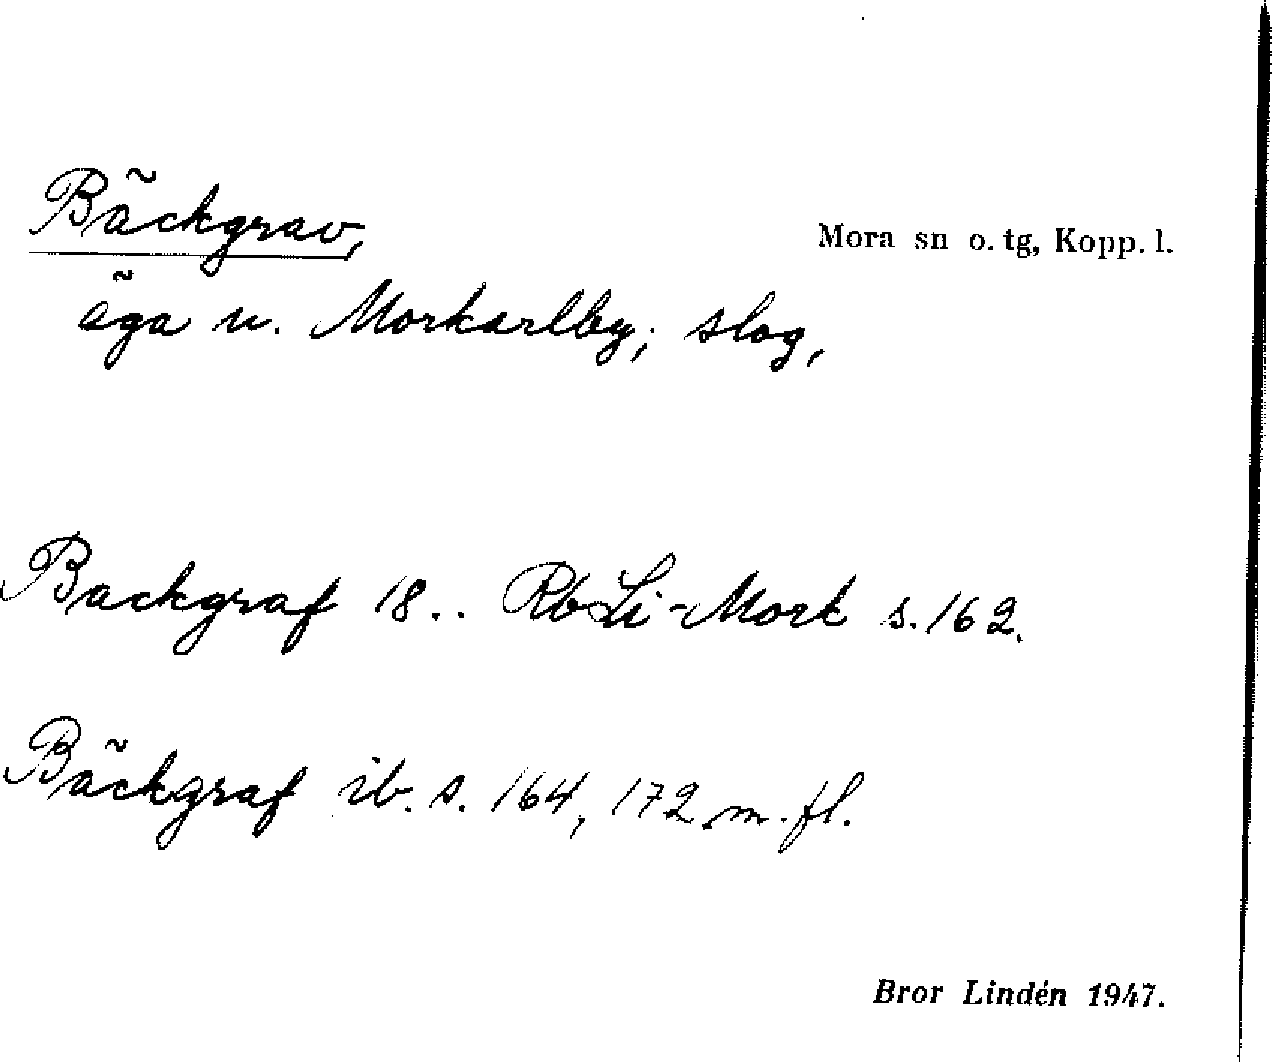 Bäckgrav,
Mora sn o. tg, Kopp. l.
äga u. Morkarlby; slog,
Backgraf 18.. RbLi-Mork s. 162.
Bäckgraf ib. s. 164, 172 m. fl.
Bror Lindén 1947.